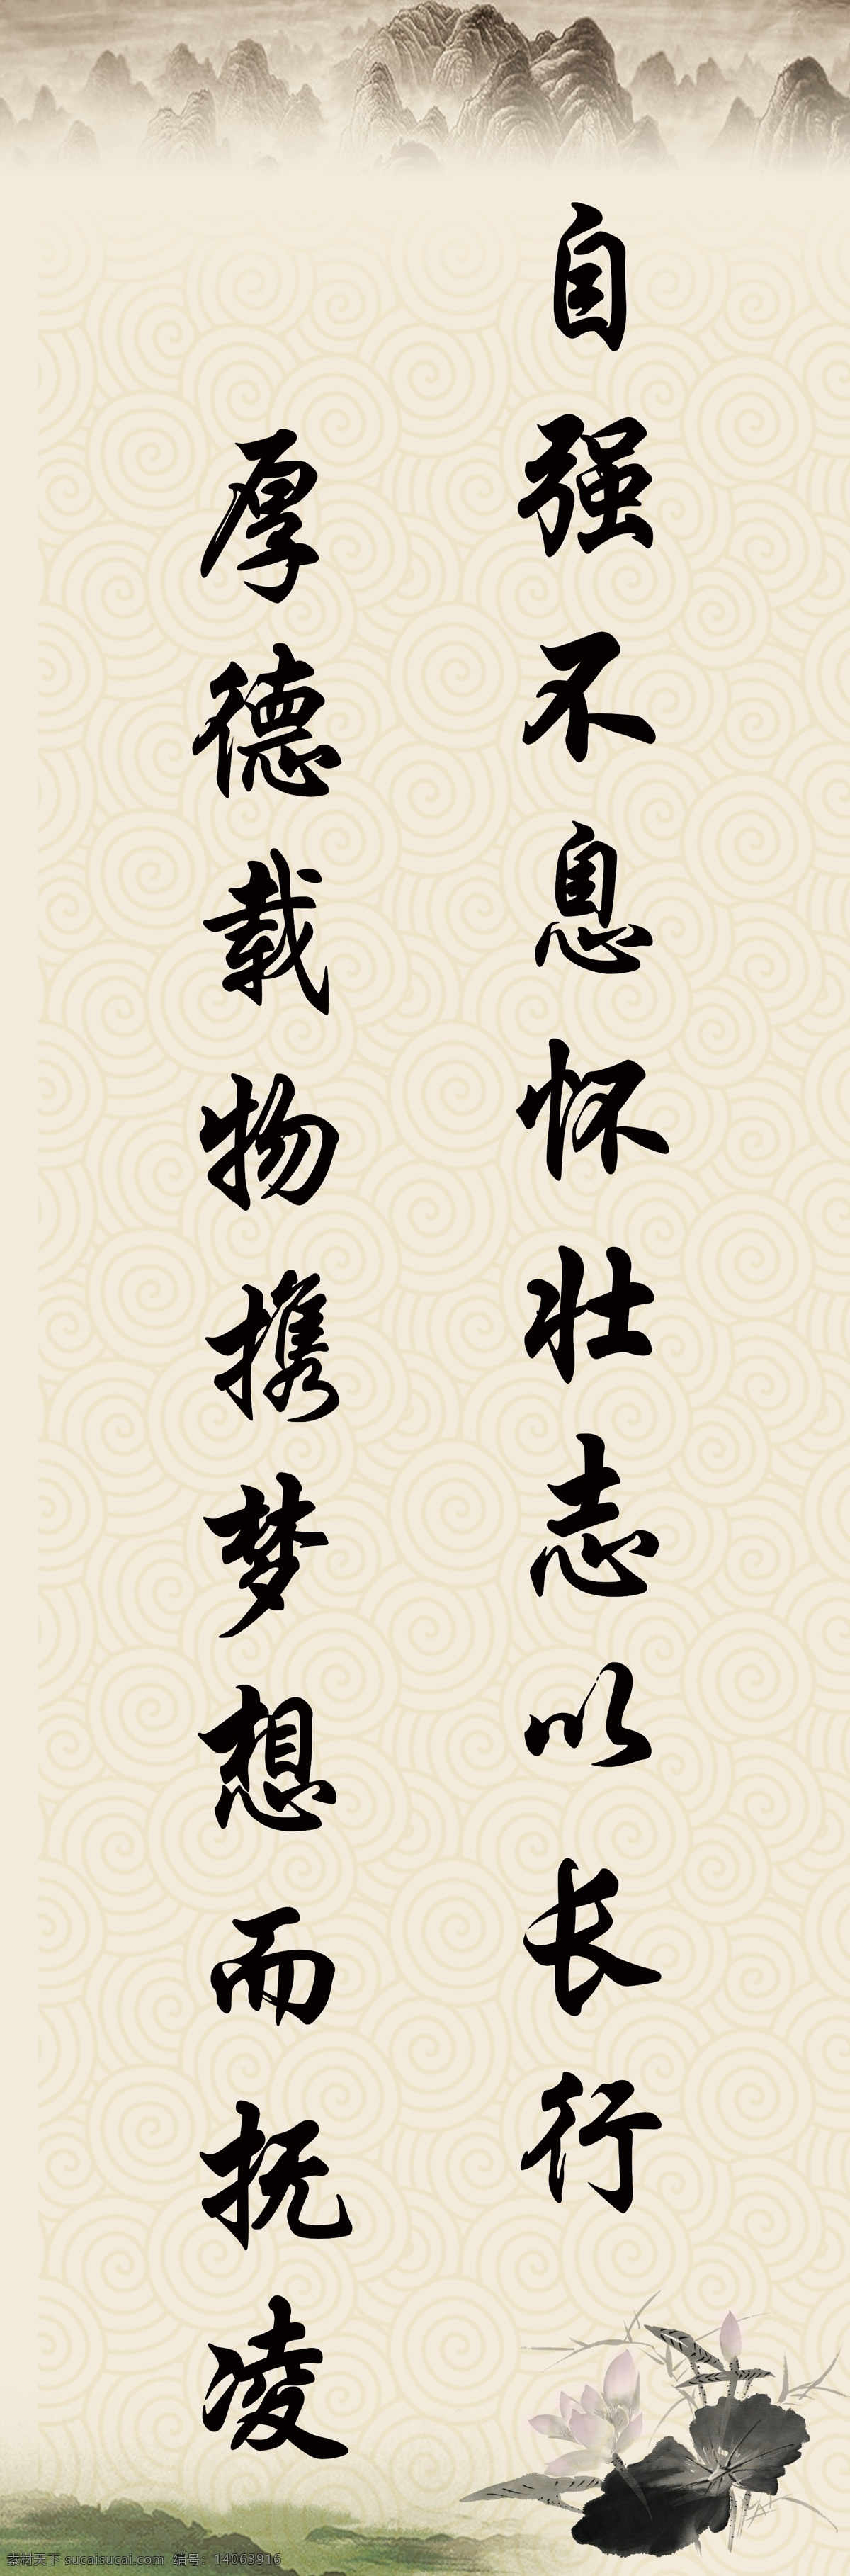 自强不息怀壮志以长行
厚德载物携梦想而抚凌
素材天下 sucaisucai.com 编号: 14063916